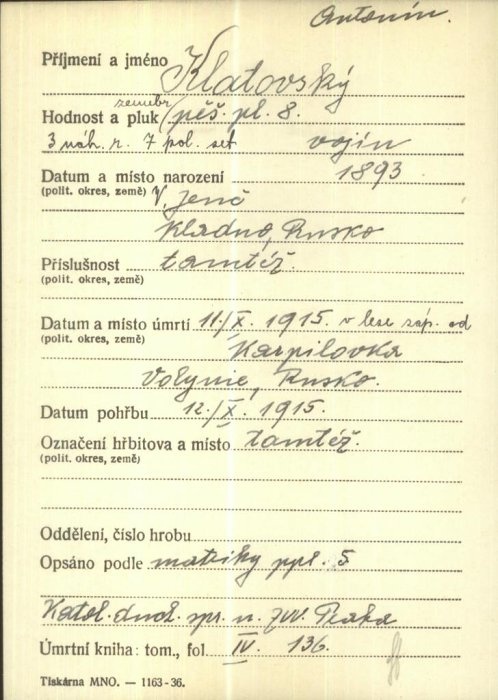 Antonín.
Příjmení a jméno Klatovský
zeměbr.
Hodnost a pluk pěš. pl. 8.
3 náh. r. 7 pol. set. vojín
Datum a místo narození 1893
(polit. okres, země) V. Jenč
Kladno, Rusko
Příslušnost tamtéž.
(polit. okres, země)
Datum a místo úmrtí 11./X. 1915. v lese záp. od
(polit. okres, země) Karpilovka
Volynie, Rusko.
Datum pohřbu 12./X. 1915.
Označení hřbitova a místo tamtéž.
(polit. okres, země)
Oddělení, číslo hrobu
Opsáno podle matriky ppl. 5
Katol. duch. spr. n. ZVV. Praha
Úmrtní kniha: tom., fol. IV. 136.
Tiskárna MNO. — 1163-36.